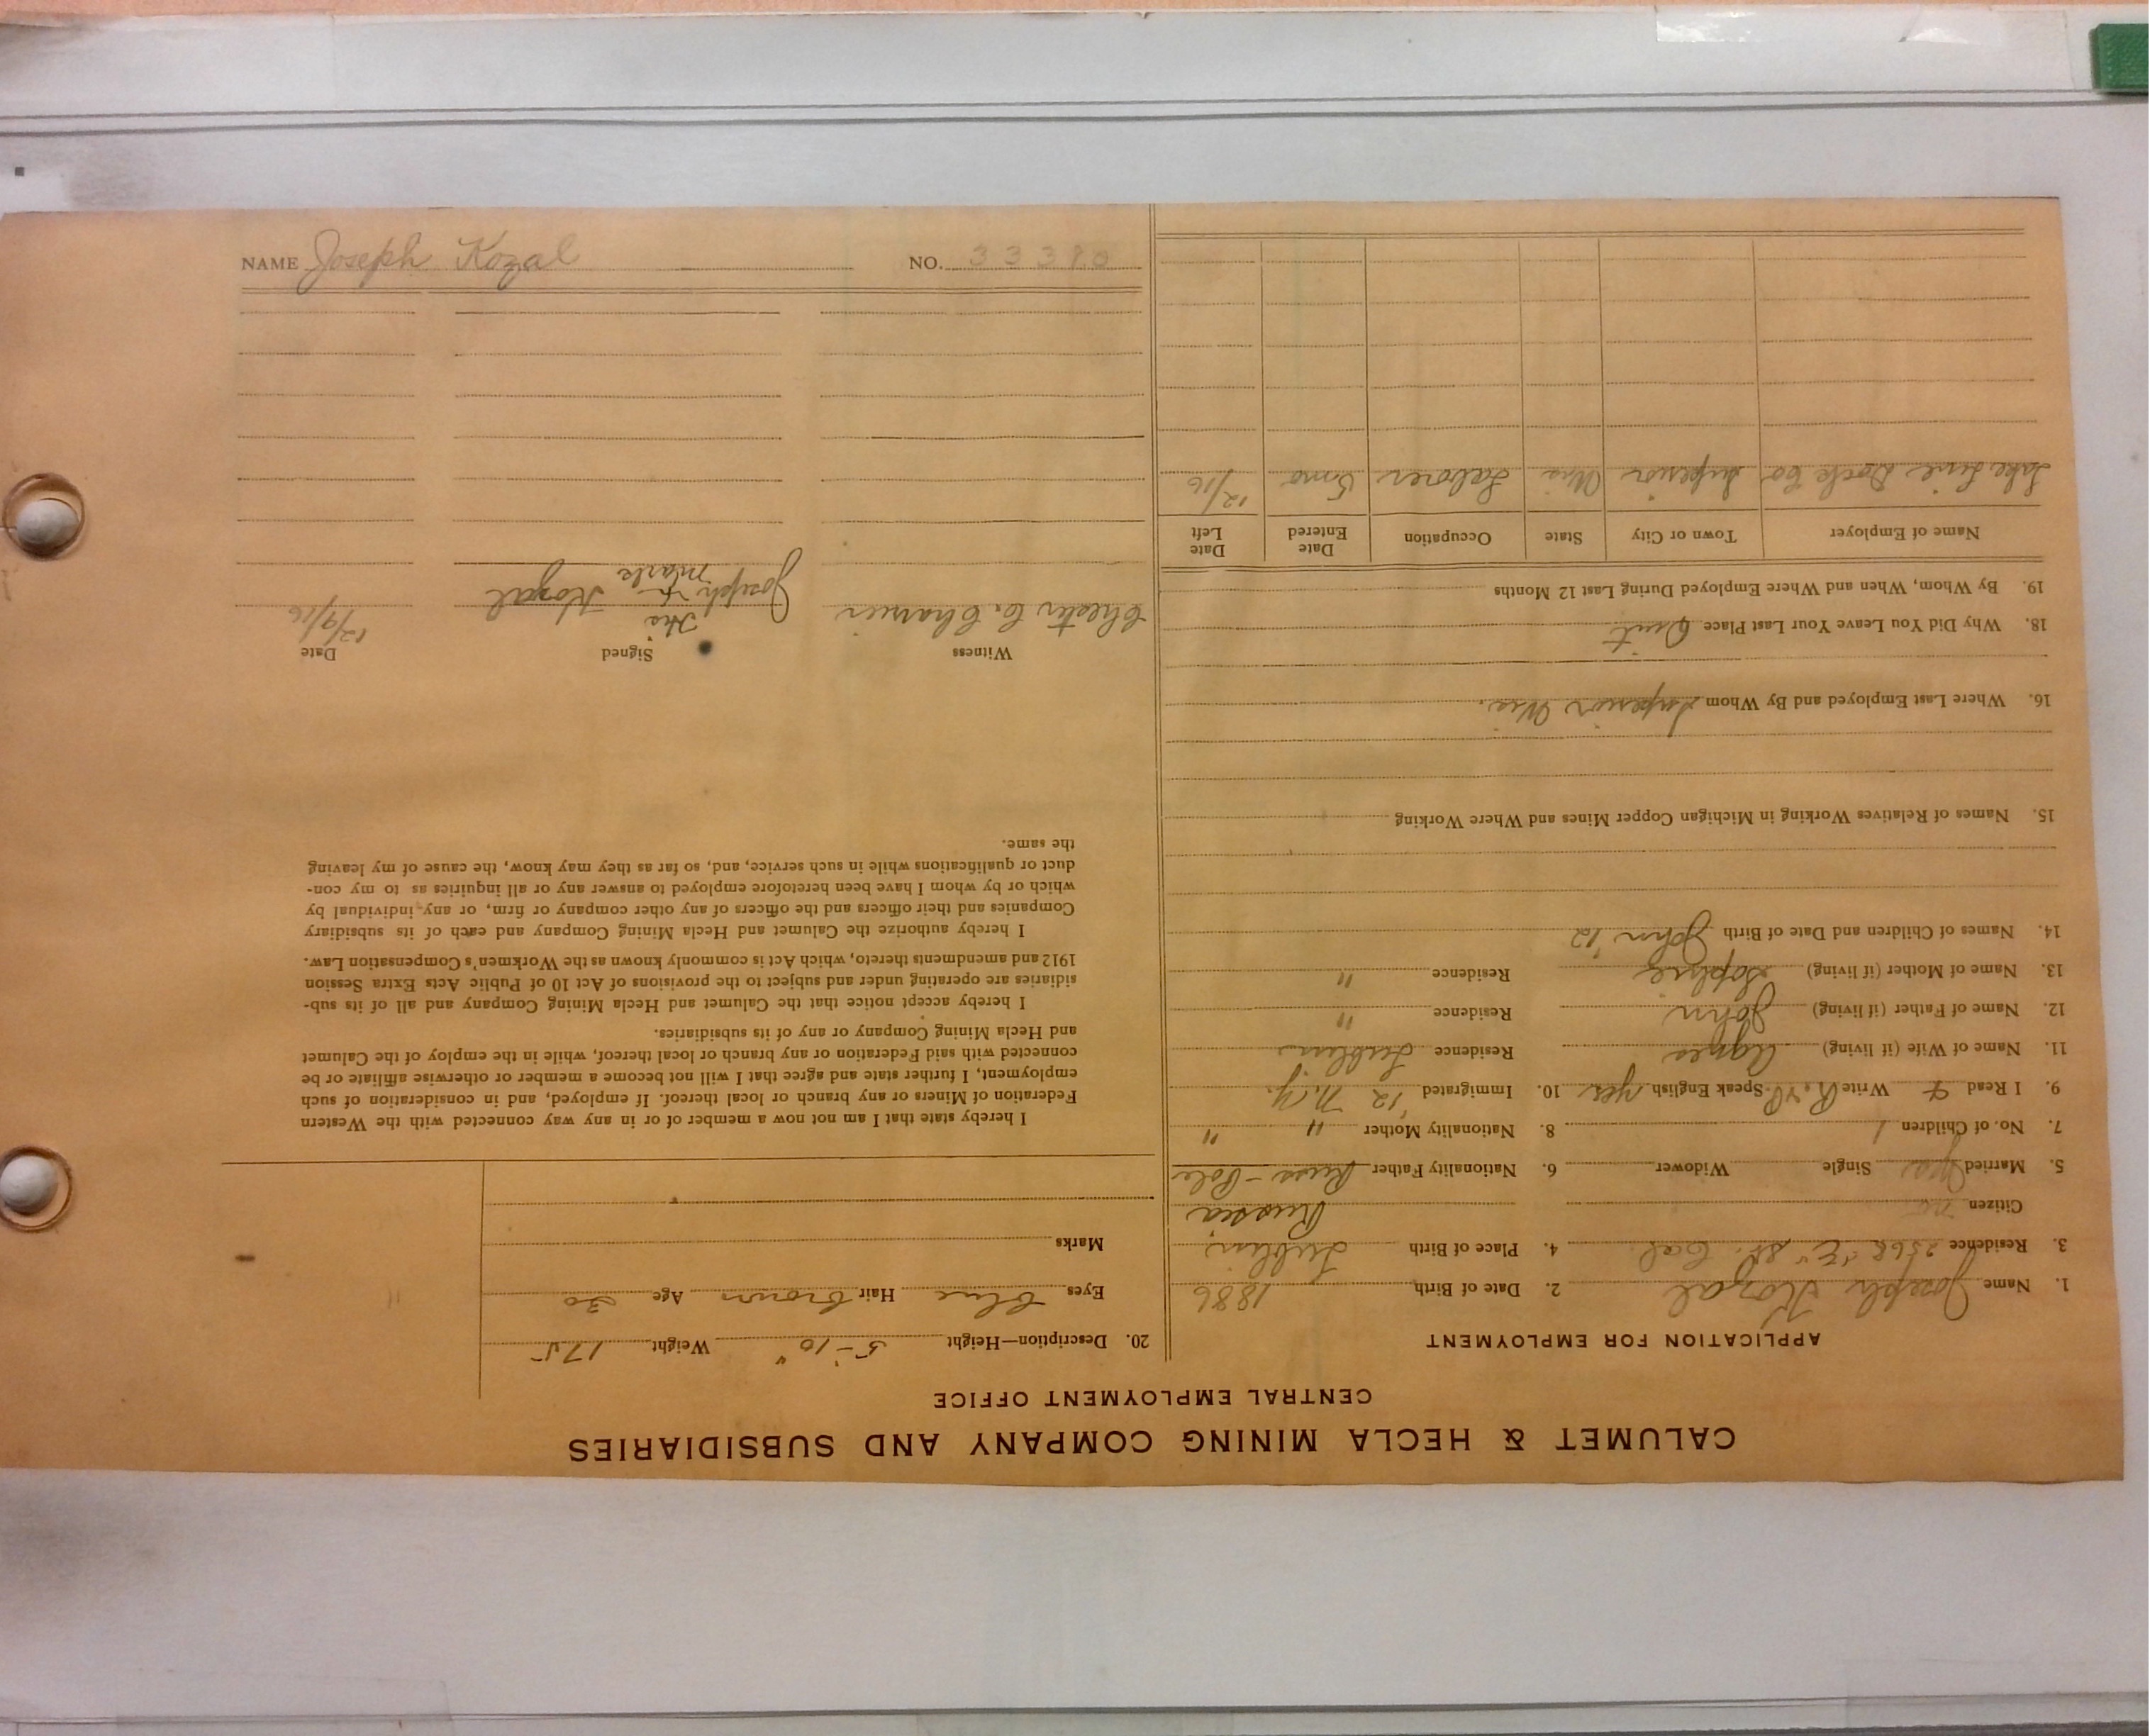 CALUMET & HECLA MINING COMPANY AND SUBSIDIARIES
CENTRAL EMPLOYMENT OFFICE
APPLICATION FOR EMPLOYMENT
1. Name Joseph Kozal 2. Date of Birth 1886
3. Residence 2568 "E" St. Cal. 4. Place of Birth Lublin
Citizen no Russia
5. Married yes Single Widower 6. Nationality Father Russ-Pole
7. No. of Children 1 8. Nationality Mother " "
9. I Read & Write Speak English yes 10. Immigrated '12 N.Y.
11. Name of Wife (if living) Agnes Residence Lublin
12. Name of Father (if living) John Residence "
13. Name of Mother (if living) Sophie Residence "
14. Names of Children and Date of Birth John '12
15. Names of Relatives Working in Michigan Copper Mines and Where Working
16. Where Last Employed and By Whom Superior Wis.
18. Why Did You Leave Your Last Place Quit
19. By Whom, When and Where Employed During Last 12 Months
Name of Employer Town or City State Occupation Date Entered Date Left
Lake Dock Co Superior Wis Laborer 5mo 12/16
20. Description—Height 5-10" Weight 175
Eyes blue Hair brown Age 30
Marks
I hereby state that I am not now a member of or in any way connected with the Western
Federation of Miners or any branch or local thereof. If employed, and in consideration of such
employment, I further state and agree that I will not become a member or otherwise affiliate or be
connected with said Federation or any branch or local thereof, while in the employ of the Calumet
and Hecla Mining Company or any of its subsidiaries.
I hereby accept notice that the Calumet and Hecla Mining Company and all of its sub-
sidiaries are operating under and subject to the provisions of Act 10 of Public Acts Extra Session
1912 and amendments thereto, which Act is commonly known as the Workmen's Compensation Law.
I hereby authorize the Calumet and Hecla Mining Company and each of its subsidiary
Companies and their officers and the officers of any other company or firm, or any individual by
which or by whom I have been heretofore employed to answer any or all inquiries as to my con-
duct or qualifications while in such service, and, so far as they may know, the cause of my leaving
the same.
Witness Signed Date
His
Chester C. Joseph + Kozal 12/9/16
mark
NAME Joseph Kozal NO. 33380